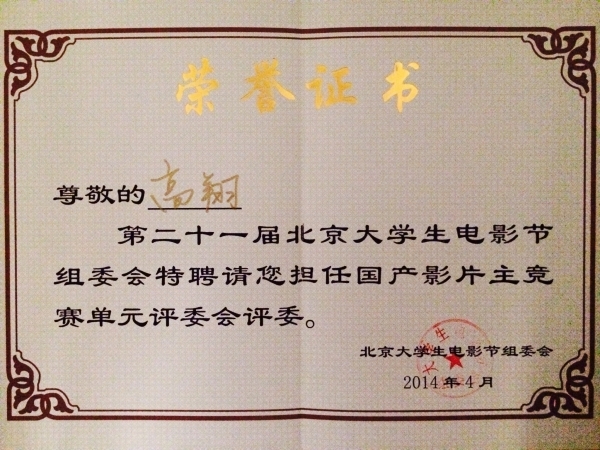 荣誉证书
尊敬的高翔
第二十一届北京大学生电影节
组委会特聘请您担任国产影片主竞
赛单元评委会评委。
北京大学生电影节组委会
2014年4月